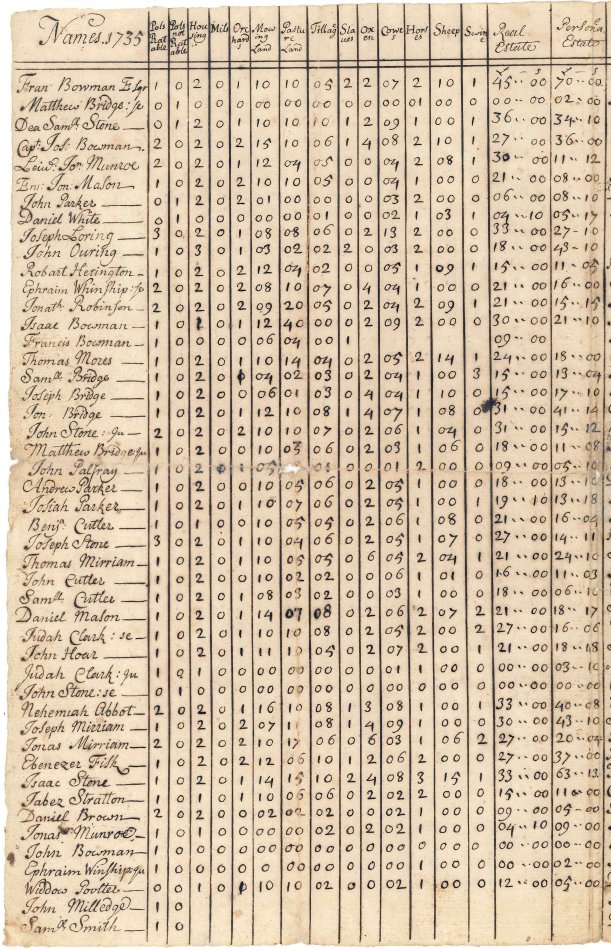 Names. 1735 Pols Rat able Pols not Rat able Hou sing Mils Orc hards Mow ing Land Pastu re Land Tillag Sla ues Ox en Cowes Hors es Sheep Swine Real Estate Persona Estate
Fran Bowman Esqr 1 0 2 0 1 10 10 05 2 2 07 2 10 1 45..00 70..00
Matthew Bridge: se 0 1 0 0 0 00 00 00 0 0 00 01 00 0 00..00 02..00
Dea Samll Stone 0 1 2 0 1 10 10 10 1 2 09 1 00 1 36..00 34..10
Capt Jos: Bowman 2 0 2 0 2 15 10 06 1 4 08 2 10 1 27..00 36..00
Leiut. Jon Munroe 2 0 2 0 1 12 04 05 0 0 04 2 08 1 30..00 11..12
Ens: Jon Mason 1 0 2 0 2 10 10 05 0 0 04 1 00 0 21..00 08..00
John Parker 0 1 2 0 2 01 00 00 0 0 03 2 00 0 06..00 08..10
Daniel White 0 1 0 0 0 00 00 01 0 0 02 1 03 1 04..10 05..17
Joseph Loring 3 0 2 0 1 08 08 06 0 2 13 2 00 0 33..00 27..10
John Ouring 1 0 3 0 1 03 02 02 2 0 03 2 00 0 18..00 43..10
Robart Herington 1 0 2 0 2 12 04 02 0 0 05 1 09 1 15..00 11..05
Ephraim Whinship: se 2 0 2 0 2 08 10 07 0 4 04 0 00 0 21..00 16..00
Jonath Robinson 2 0 2 0 2 09 20 05 0 2 04 2 09 1 21..00 15..15
Isaac Bowman 1 0 1 0 1 12 40 00 0 2 09 2 00 0 30..00 21..10
Francis Bowman 1 0 0 0 0 06 04 00 1 09..00
Thomas Mores 1 0 2 0 1 10 14 04 0 2 05 2 14 1 24..00 18..00
Samll Bridge 1 0 2 0 1 04 02 03 0 2 04 1 00 3 15..00 13..04
Joseph Bridge 1 0 2 0 0 06 01 03 0 4 04 1 10 0 15..00 17..10
Jon: Bridge 1 0 2 0 1 12 10 08 1 4 07 1 08 31..00 41..14
John Stone: ju 2 0 2 0 2 10 10 07 0 2 06 1 04 0 31..00 15..12
Matthew Bridge: ju 1 0 2 0 1 10 05 06 0 2 03 1 06 18..00 11..08
John Palfray 1 0 2 0 1 05 01 0 0 01 2 00 0 09..00 05..10
Andrew Parker 1 0 2 0 0 10 05 06 0 2 05 1 00 0 18..00 13..10
Josiah Parker 1 0 2 0 1 10 07 06 0 2 05 1 00 1 19..10 13..18
Benj: Cutler 1 0 1 0 0 10 05 05 0 2 06 1 08 0 21..00 16..04
Joseph Stone 3 0 2 0 1 10 04 06 0 2 05 1 07 0 27..00 14..11
Thomas Mirriam 1 0 2 0 1 10 05 05 0 6 05 2 04 1 21..00 24..10
John Cutler 1 0 2 0 0 10 02 02 0 0 06 1 01 0 16..00 11..03
Samll Cutler 1 0 2 0 1 08 03 02 0 0 03 1 00 0 18..00 06..10
Daniel Mason 1 0 2 0 1 14 07 08 0 2 06 2 07 2 21..00 18..17
Judah Clark: se 1 0 2 0 1 10 10 08 0 2 05 2 00 2 27..00 16..06
John Hoar 1 0 2 0 1 11 10 05 0 2 07 2 00 1 21..00 18..18
Judah Clark: ju 1 0 1 0 0 00 00 00 0 0 01 1 00 0 00..00 03..10
John Stone: se 0 1 0 0 0 00 00 00 0 0 00 0 00 0 00..00 00..00
Nehemiah Abbot 2 0 2 0 1 16 10 08 1 3 08 1 00 1 33..00 40..08
Joseph Mirriam 1 0 2 0 2 07 11 08 0 4 09 1 00 0 30..00 43..10
Jonas Mirriam 2 0 2 0 2 10 17 06 0 6 03 1 06 2 27..00 20..04
Ebenezer Fisk 1 0 2 0 2 12 06 10 1 2 06 2 00 0 27..00 37..00
Isaac Stone 1 0 2 0 1 14 15 10 2 4 08 3 15 1 33..00 63..13
Jabez Stratton 1 0 1 0 1 10 06 06 0 2 02 2 00 0 15..00 11..00
Daniel Brown 2 0 2 0 0 02 02 02 0 0 02 0 00 0 09..00 05..00
Jonas Munroe 1 0 1 0 0 00 00 02 0 2 02 1 00 0 04..10 09..00
John Bowman 1 0 0 0 0 00 00 00 0 0 00 0 00 0 00..00 00..00
Ephraim Winship: ju 1 0 0 0 0 00 00 00 0 0 00 1 00 0 00..00 02..00
Widdow Poulter 0 0 1 0 1 10 10 02 0 0 02 1 00 0 12..00 05..00
John Milledge 1 0
Samll Smith 1 0